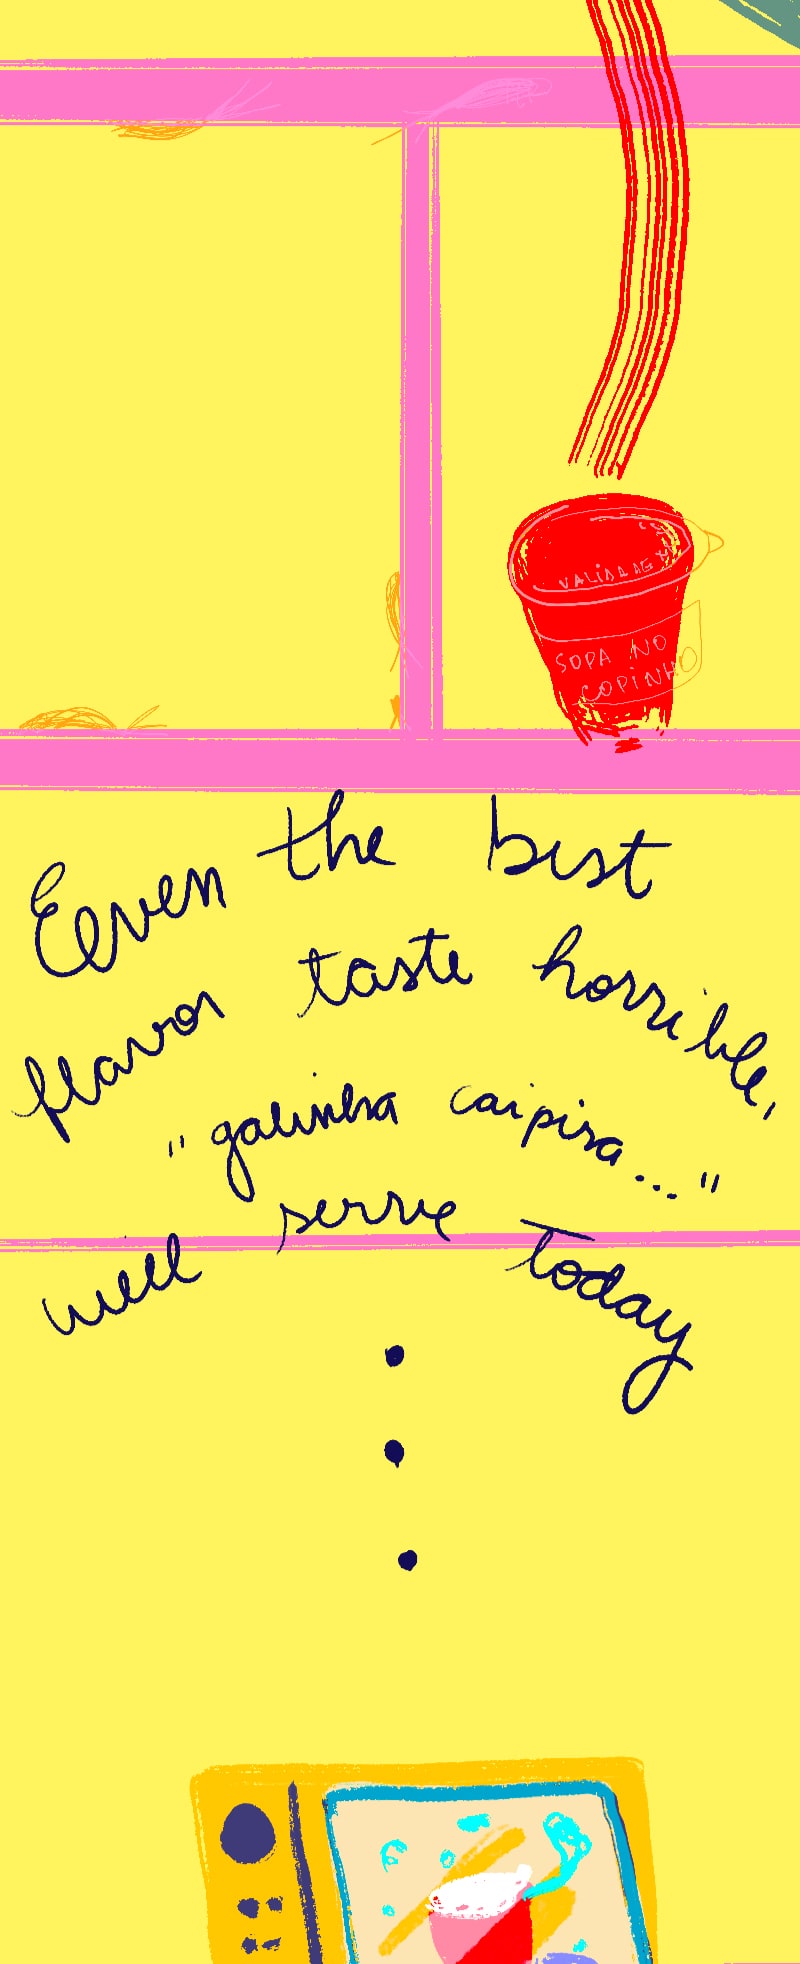 VALIDADE
SOPA NO
COPINHO
Eeven the best
flavor taste horrible,
"galinha caipira..."
will serve today